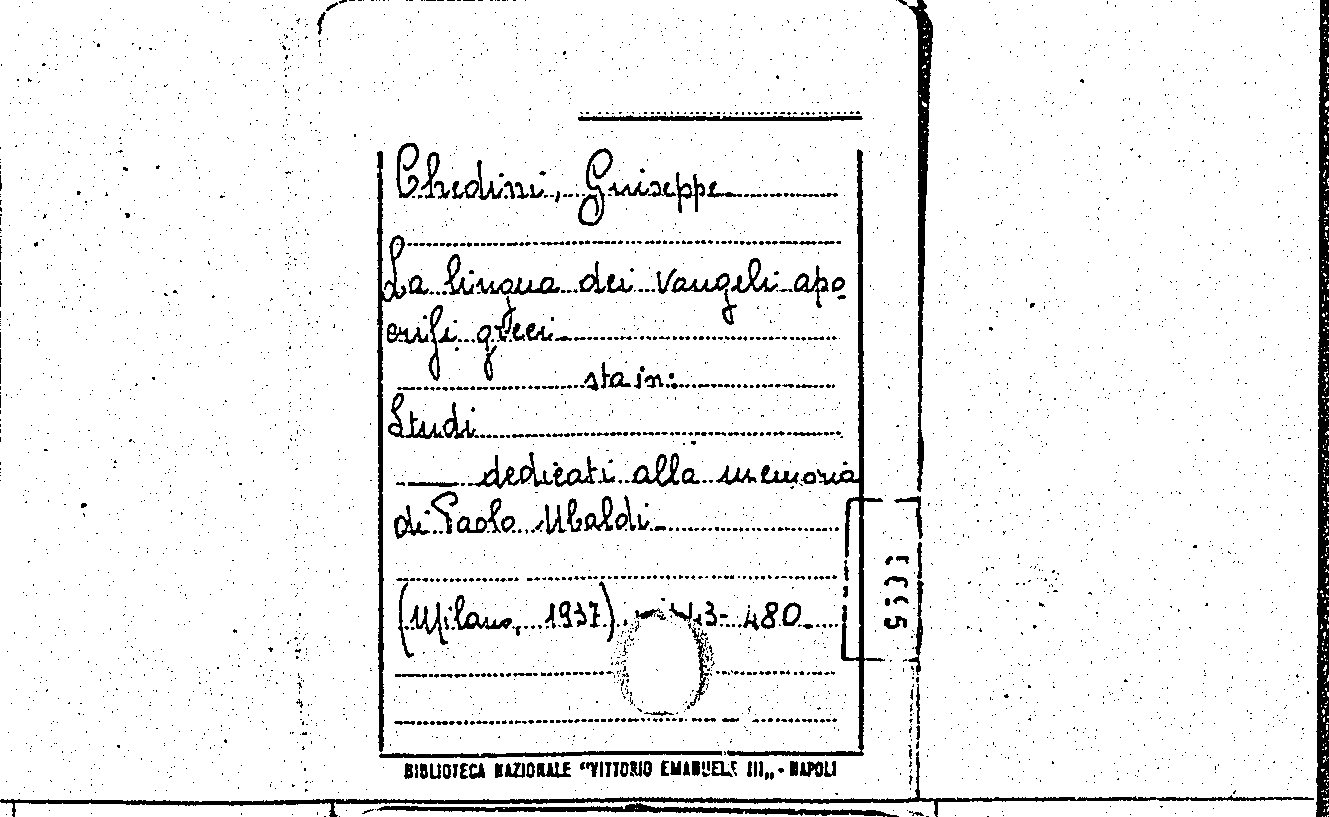 Ghedini, Giuseppe
La lingua dei Vangeli apo
crifi greci.
sta in:
Studi
— dedicati alla memoria
di Paolo Ubaldi.
(Milano, 1937). 3-480.
BIBLIOTECA NAZIONALE "VITTORIO EMANUELE III„ - NAPOLI